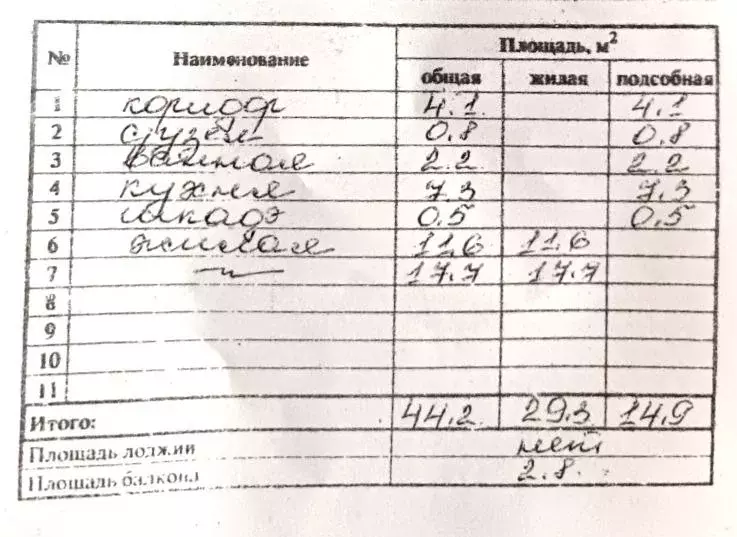 № Наименование Площадь, м²
общая жилая подсобная
1 коридор 4.1 4.1
2 с/узел 0.8 0.8
3 ванная 2.2 2.2
4 кухня 7.3 7.3
5 шкаф 0.5 0.5
6 жилая 11.6 11.6
7 —〃— 17.7 17.7
8
9
10
11
Итого: 44.2 29.3 14.9
Площадь лоджии нет
Площадь балкона 2.8.